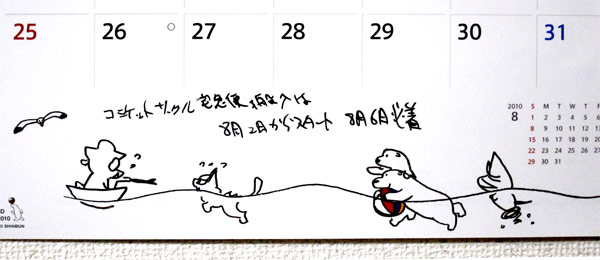 25 26 27 28 29 30 31
コミケットサークル 宅急便搬入は
8月2日からスタート 8月6日必着
2010 S M T W T F
8 1 2 3 4 5 6
8 9 10 11 12 13
15 16 17 18 19 20
22 23 24 25 26 27
29 30 31
010
SHINBUN